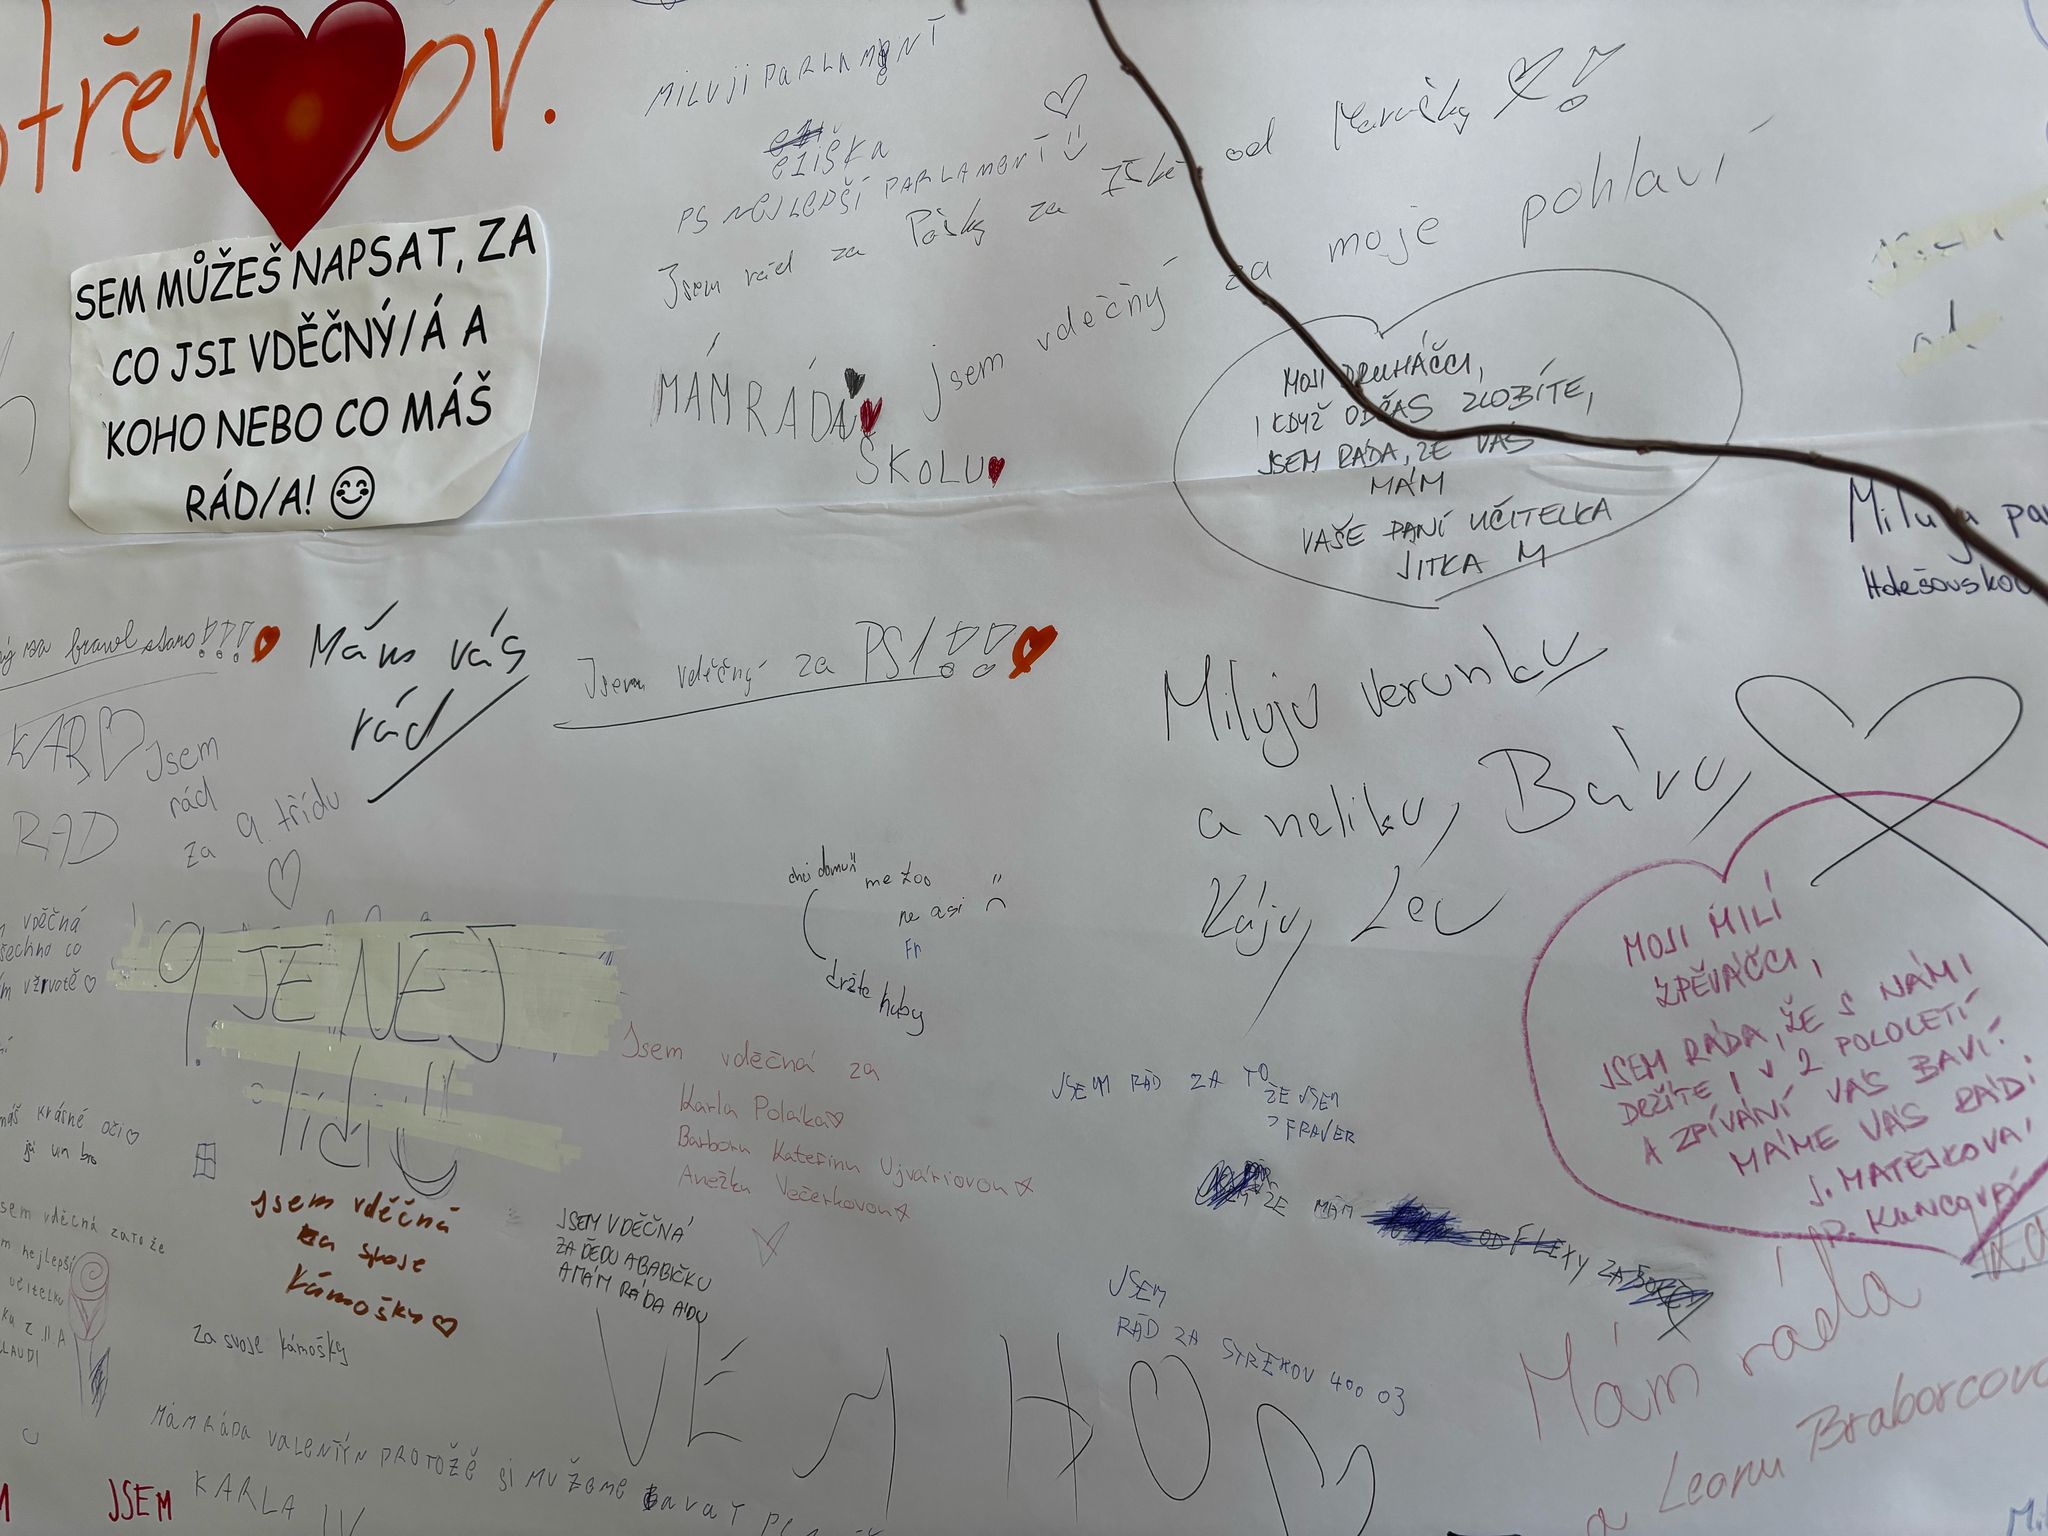 střek ov.
SEM MŮŽEŠ NAPSAT, ZA
CO JSI VDĚČNÝ/Á A
KOHO NEBO CO MÁŠ
RÁD/A!
MILUJI PARLAMENT
eliška
PS NEJLEPŠÍ PARLAMENT
Jsem rád za Páťky za od Marušky !
MÁM RÁDA
ŠKOLU
jsem vděčný za moje pohlaví
MOJI DRUHÁČCI,
I KDYŽ OBČAS ZLOBÍTE,
JSEM RÁDA, ŽE VÁS
MÁM
VAŠE PANÍ UČITELKA
JITKA M
Miluju
Holešovskou
za brawl stars!!!
Mám vás
rád
Jsem vděčný za PS1!!!
KARD
RAD
Jsem
rád
za 9. třídu
Miluju verunku
a neliku, Báru,
Káju, Leu
chci domu
me too
ne asi
Fr
držte huby
vděčná
všechno co
9. JE NEJ
lidi
Jsem vděčná za
Karla Poláka
Barboru Kateřinu Ujváriovou
Anežku Večerkovou
MOJI MILÍ
ZPĚVÁČCI,
JSEM RÁDA, ŽE S NÁMI
DRŽÍTE I V 2. POLOLETÍ
A ZPÍVÁNÍ VÁS BAVÍ.
MÁME VÁS RÁDI
J. MATĚJKOVÁ
P. KUNCOVÁ
JSEM RÁD ZA TO
ŽE JSEM
FRAJER
ŽE MÁM OD FLEXY ZA
máš krásné oči
jsi un bro
jsem vděčná zato že
nejlepší
učitelku
z II A
jsem vděčná
za svoje
kámošky
JSEM VDĚČNÁ
ZA DĚDU A BABIČKU
A MÁM RÁDA ADU
Za svoje kámošky
JSEM
RÁD ZA STŘEKOV 400 03
Mám ráda
a Leonu Braborcovou
MÁM RÁDA VALENTÝN PROTOŽE SI MŮŽEME DÁVAT
JSEM
KARLA
IV